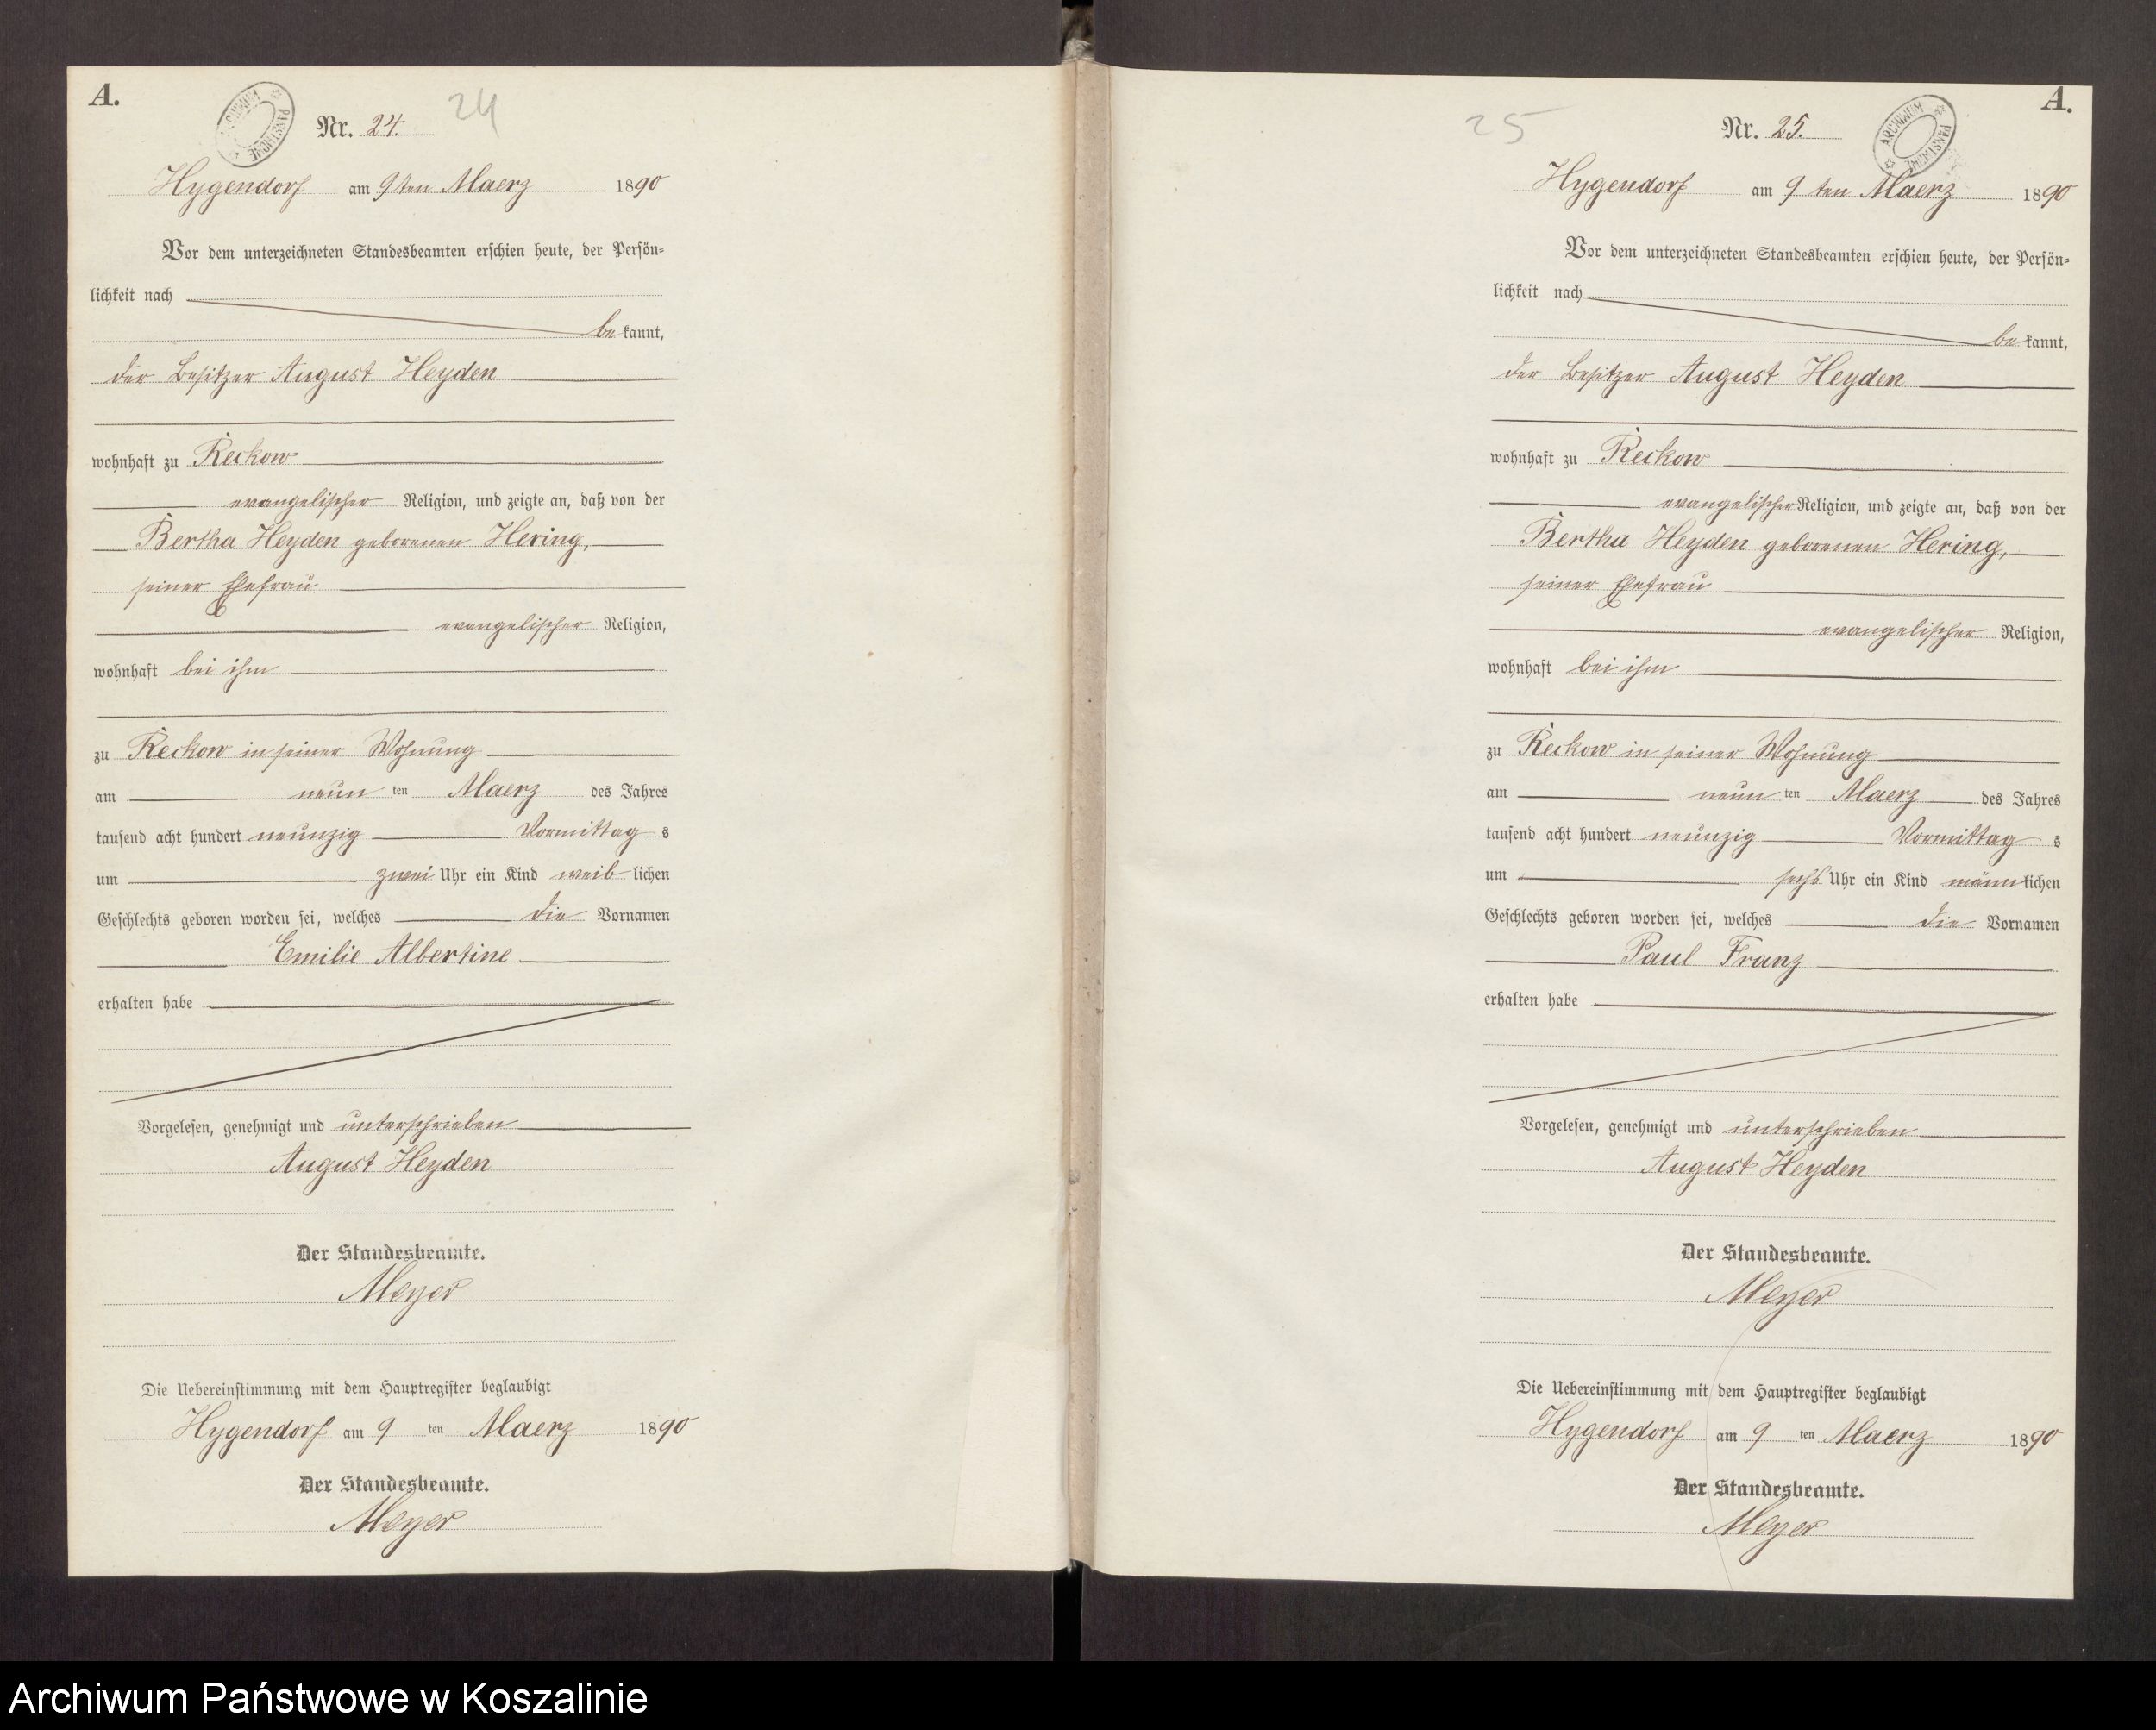 A.
ARCHIWUM PAŃSTWOWE
Nr. 24.
24
Hygendorf am 9ten Maerz 1890
Vor dem unterzeichneten Standesbeamten erschien heute, der Persön-
lichkeit nach
be kannt,
der Besitzer August Heyden
wohnhaft zu Reckow
evangelischer Religion, und zeigte an, daß von der
Bertha Heyden geborenen Hering,
seiner Ehefrau
evangelischer Religion,
wohnhaft bei ihm
zu Reckow in seiner Wohnung
am neun ten Maerz des Jahres
tausend acht hundert neunzig Vormittag s
um zwei Uhr ein Kind weib lichen
Geschlechts geboren worden sei, welches die Vornamen
Emilie Albertine
erhalten habe
Vorgelesen, genehmigt und unterschrieben
August Heyden
Der Standesbeamte.
Meyer
Die Uebereinstimmung mit dem Hauptregister beglaubigt
Hygendorf am 9 ten Maerz 1890
Der Standesbeamte.
Meyer
A.
25
Nr. 25.
ARCHIWUM PAŃSTWOWE
Hygendorf am 9 ten Maerz 1890
Vor dem unterzeichneten Standesbeamten erschien heute, der Persön-
lichkeit nach
be kannt,
der Besitzer August Heyden
wohnhaft zu Reckow
evangelischer Religion, und zeigte an, daß von der
Bertha Heyden geborenen Hering,
seiner Ehefrau
evangelischer Religion,
wohnhaft bei ihm
zu Reckow in seiner Wohnung
am neun ten Maerz des Jahres
tausend acht hundert neunzig Vormittag s
um sechs Uhr ein Kind männ lichen
Geschlechts geboren worden sei, welches die Vornamen
Paul Franz
erhalten habe
Vorgelesen, genehmigt und unterschrieben
August Heyden
Der Standesbeamte.
Meyer
Die Uebereinstimmung mit dem Hauptregister beglaubigt
Hygendorf am 9 ten Maerz 1890
Der Standesbeamte.
Meyer
Archiwum Państwowe w Koszalinie